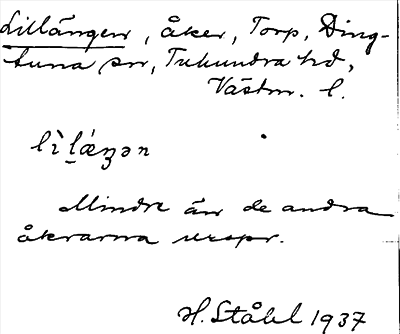 Lillängen, åker, Torp, Ding-
tuna sn, Tuhundra hd,
Västm. l.
lìlǽŋən
Mindre än de andra
åkrarna urspr.
H. Ståhl 1937